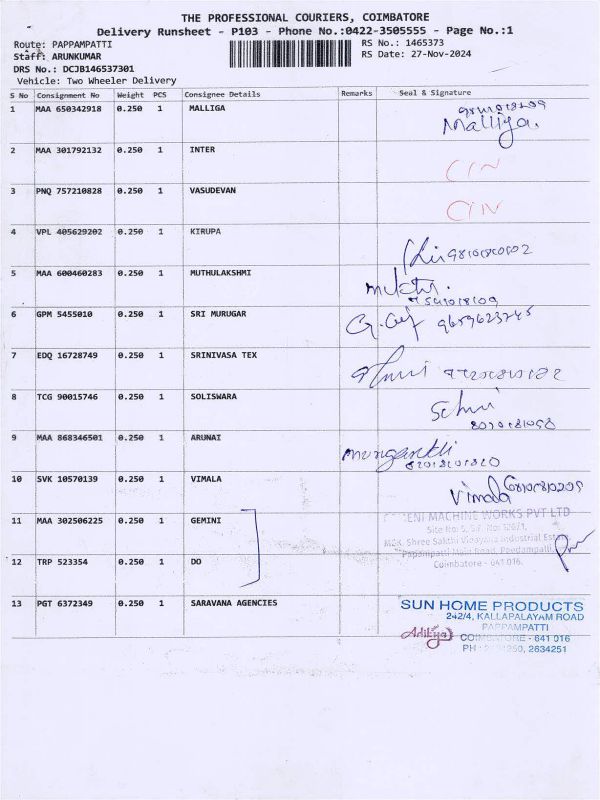 THE PROFESSIONAL COURIERS, COIMBATORE
Delivery Runsheet - P103 - Phone No.:0422-3505555 - Page No.:1
Route: PAPPAMPATTI
RS No.: 1465373
Staff: ARUNKUMAR
RS Date: 27-Nov-2024
DRS No.: DCJB146537301
Vehicle: Two Wheeler Delivery
S No Consignment No Weight PCS Consignee Details Remarks Seal & Signature
1 MAA 650342918 0.250 1 MALLIGA
Malliga.
2 MAA 301792132 0.250 1 INTER
CIN
3 PNQ 757210828 0.250 1 VASUDEVAN
CIN
4 VPL 405629202 0.250 1 KIRUPA
5 MAA 600460283 0.250 1 MUTHULAKSHMI
6 GPM 5455010 0.250 1 SRI MURUGAR
9659623745
7 EDQ 16728749 0.250 1 SRINIVASA TEX
8 TCG 90015746 0.250 1 SOLISWARA
9 MAA 868346501 0.250 1 ARUNAI
10 SVK 10570139 0.250 1 VIMALA
Vimala
11 MAA 302506225 0.250 1 GEMINI
ENI MACHINE WORKS PVT LTD
Site No: 5, S.F. No: 126/1,
MGK. Shree Sakthi Vinayaga Industrial Estate
Pappampatti Main Road, Peedampalli,
Coimbatore - 641 016.
12 TRP 523354 0.250 1 DO
13 PGT 6372349 0.250 1 SARAVANA AGENCIES
SUN HOME PRODUCTS
242/4, KALLAPALAYAM ROAD
PAPPAMPATTI
Aditya COIMBATORE - 641 016
PH : 2634251